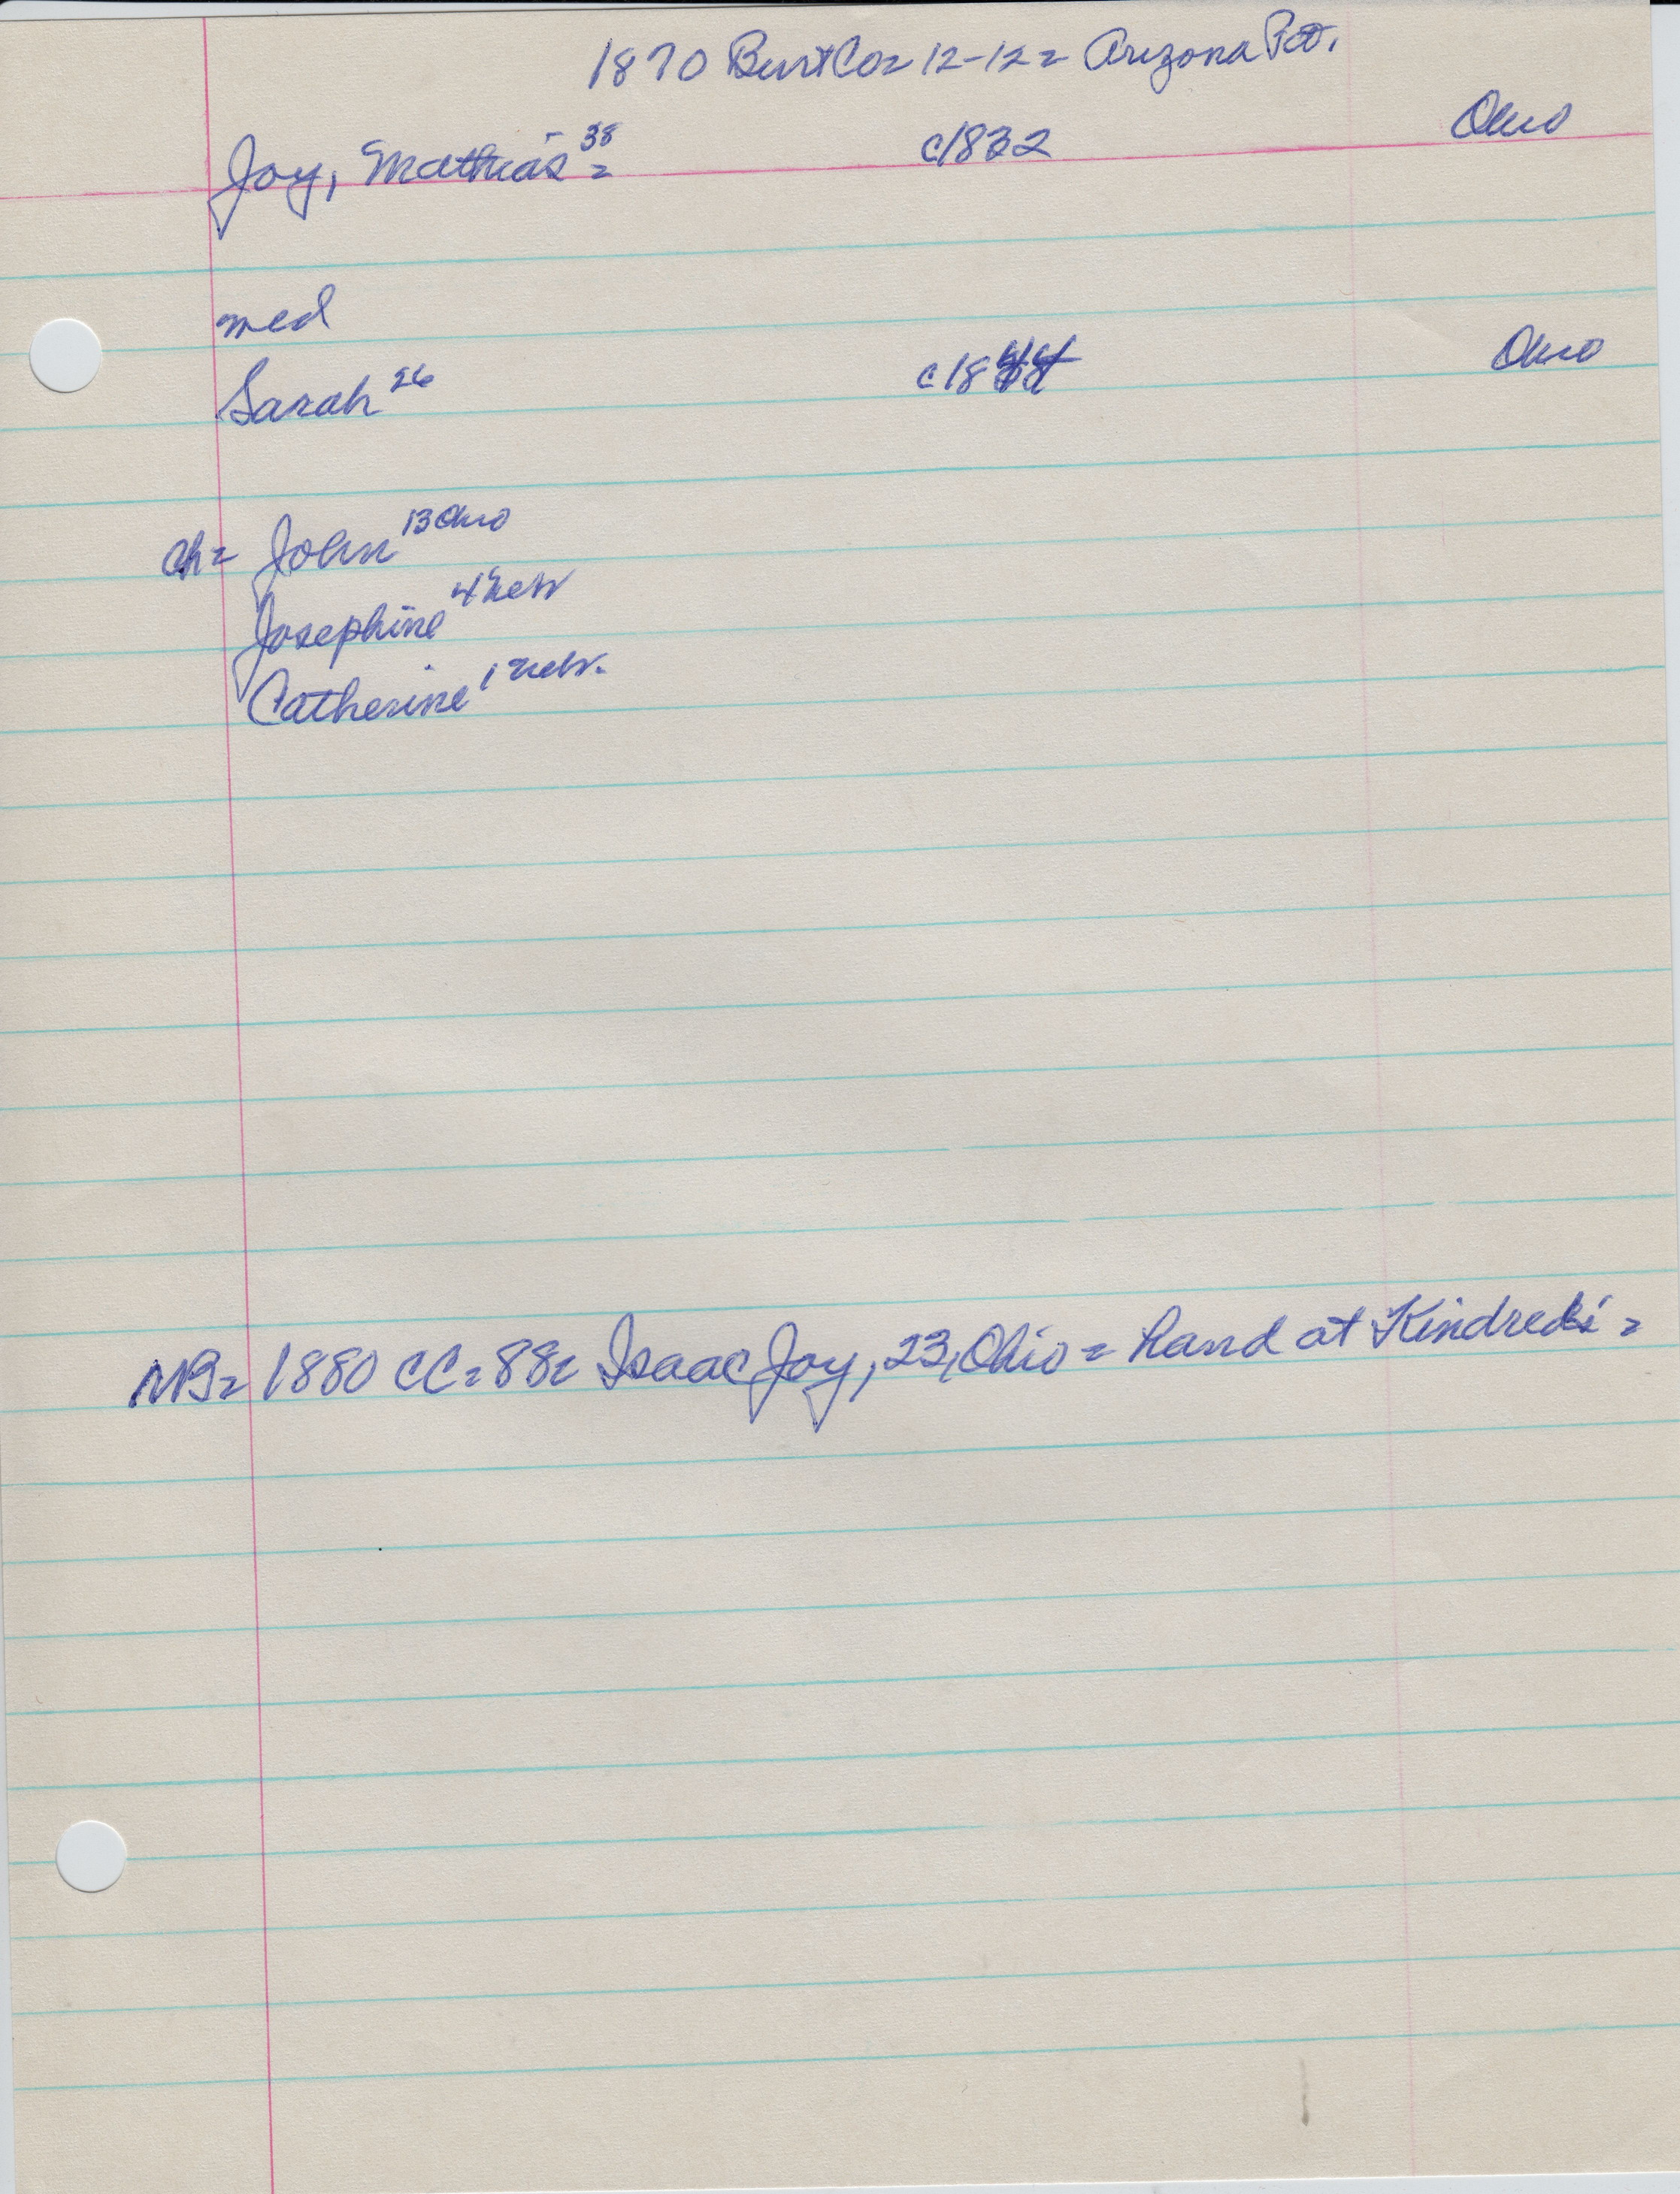 1870 Burt Co= 12-12= Arizona Pct.
Joy, Mathias 38= c1832 Ohio
med
Sarah 26 c1844 Ohio
Ch= John 13 Ohio
Josephine 4 Nebr
Catherine 1 Nebr.
NB= 1880 CC=88= Isaac Joy, 23, Ohio = hand at Kindred's =